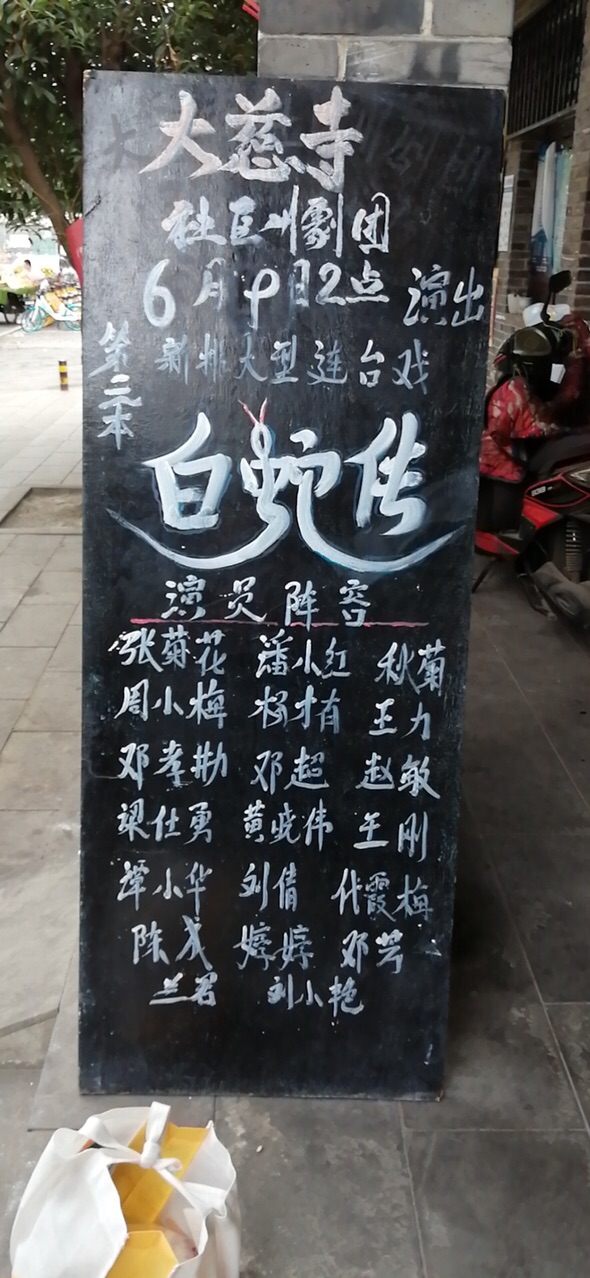 大慈寺
社区川剧团
6月9日2点 演出
新排大型连台戏
第二本
白蛇传
演员阵容
张菊花 潘小红 秋菊
周小梅 杨才有 王力
邓孝勤 邓超 赵敏
梁仕勇 黄晓伟 王刚
谭小华 刘倩 代霞梅
陈戎 婷婷 邓芩
兰君 刘小艳